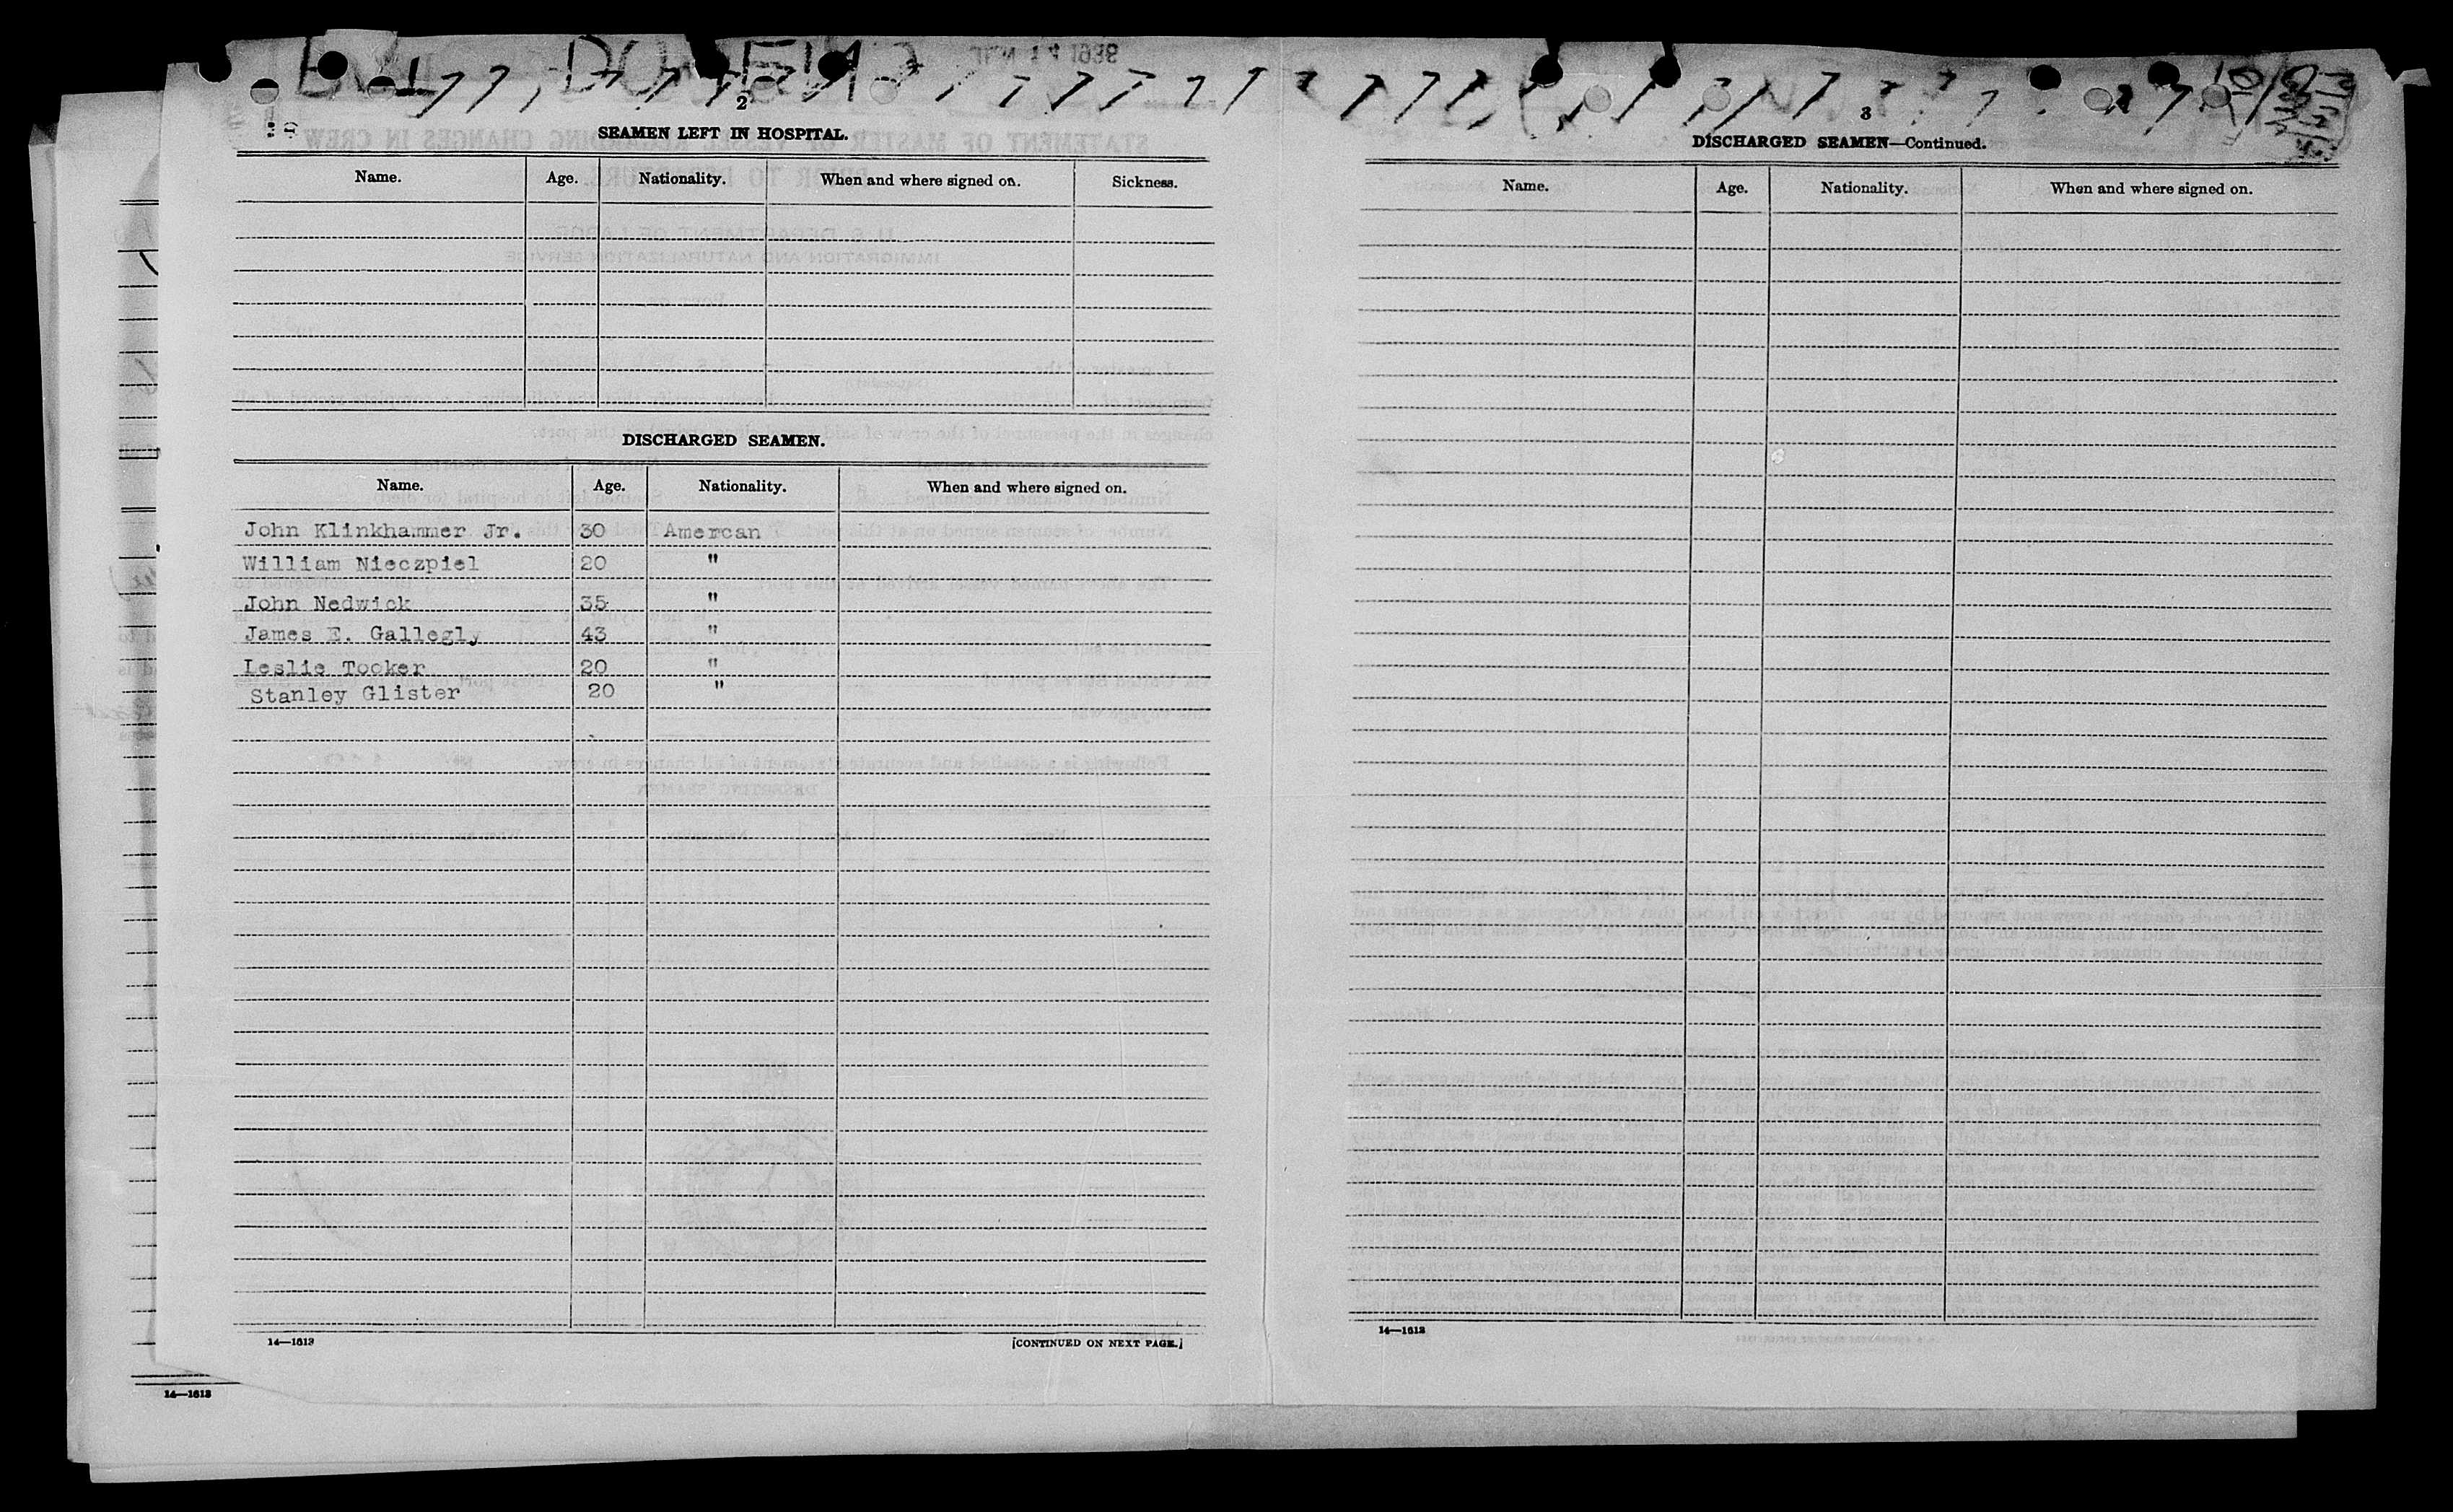 2
SEAMEN LEFT IN HOSPITAL.
Name. Age. Nationality. When and where signed on. Sickness.
DISCHARGED SEAMEN.
Name. Age. Nationality. When and where signed on.
John Klinkhammer Jr. 30 Amercan
William Nieczpiel 20 "
John Nedwick 35 "
James E. Gallegly 43 "
Leslie Tooker 20 "
Stanley Glister 20 "
14—1613
[CONTINUED ON NEXT PAGE.]
14—1613
3
DISCHARGED SEAMEN—Continued.
Name. Age. Nationality. When and where signed on.
14—1613